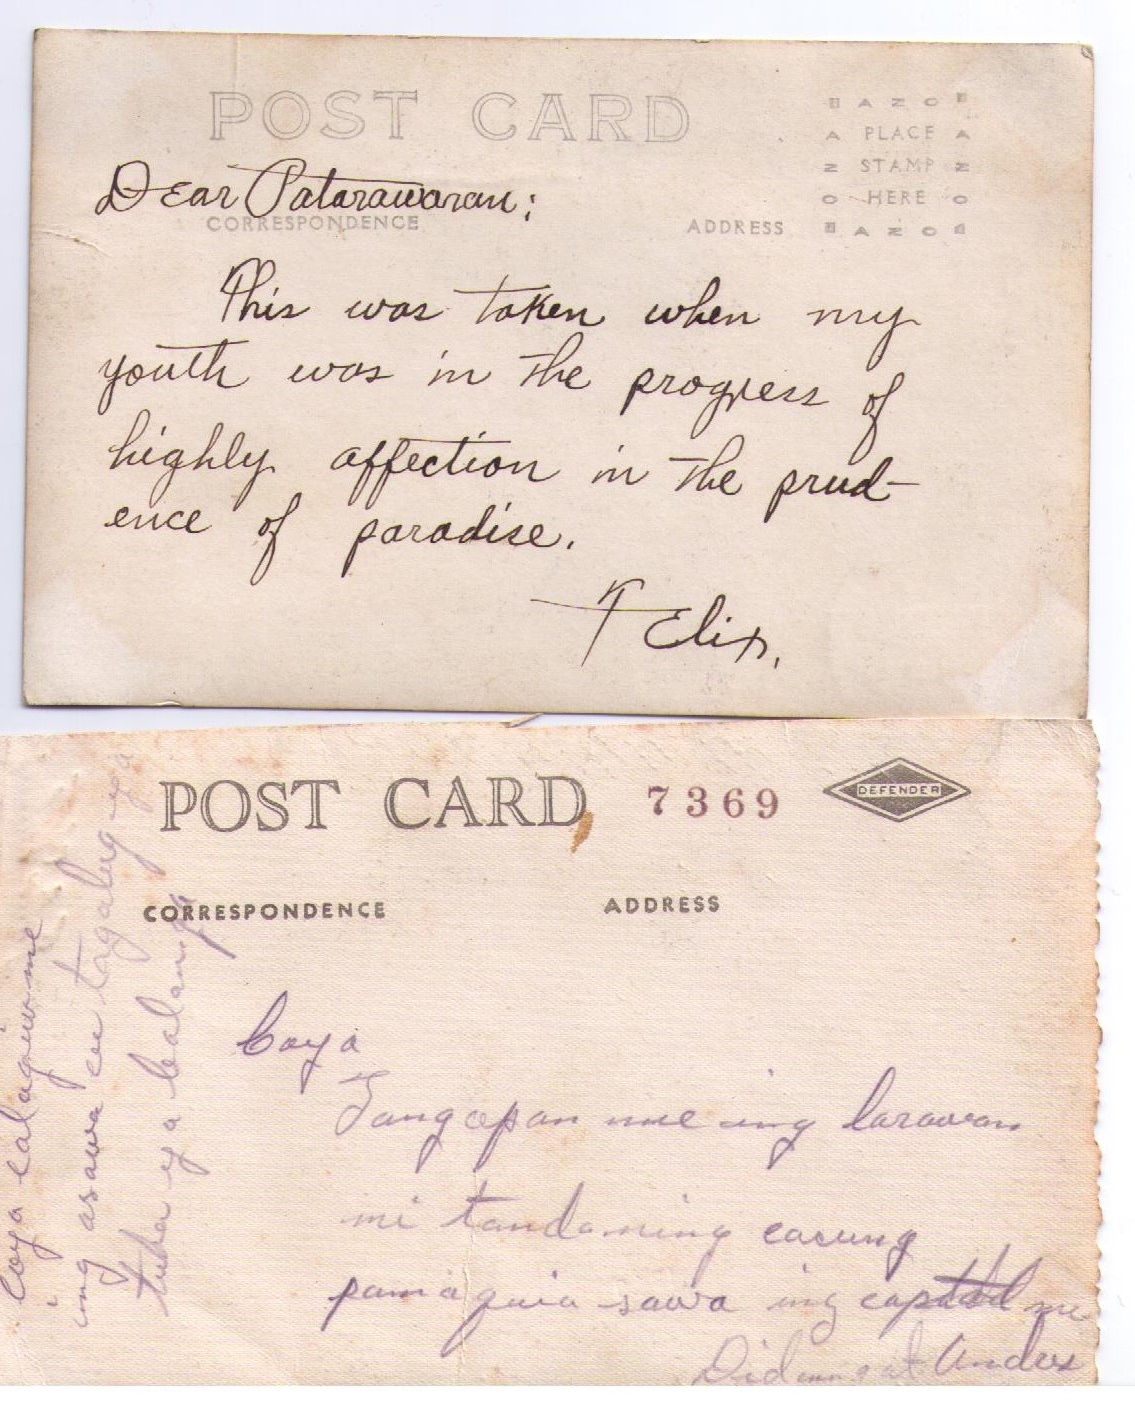 POST CARD
AZO
PLACE
STAMP
HERE
AZO
Dear Patarawaran;
CORRESPONDENCE
ADDRESS
This was taken when my
youth was in the progress of
highly affection in the prud-
ence of paradise.
Felix.
POST CARD
7369
DEFENDER
CORRESPONDENCE
ADDRESS
Coya
Tangapan me ing larawan
mi tandaning casung
sawa ing me
at Andres
Coya
ing asawa cu tagalug ya
tuba ya balang